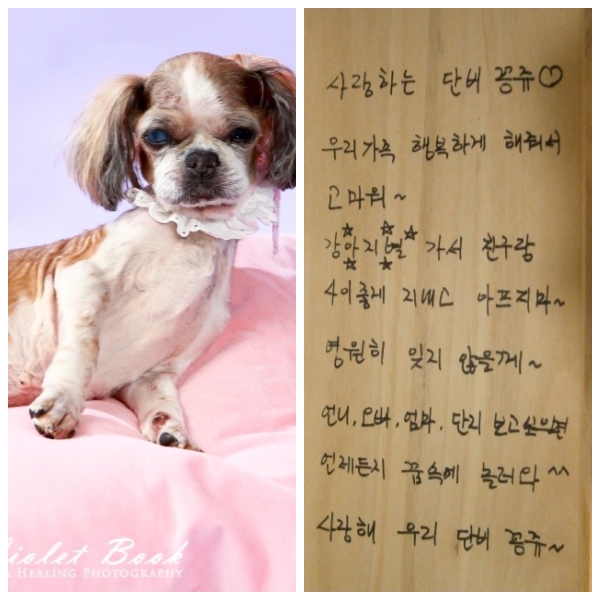 Violet Book
HEALING PHOTOGRAPHY
사랑하는 단비 꽁쥬♡
우리가족 행복하게 해줘서
고마워~
강아지별 가서 친구랑
사이좋게 지내고 아프지마~
영원히 잊지 않을께~
언니, 오빠, 엄마, 단지 보고싶으면
언제든지 꿈속에 놀러와 ^^
사랑해 우리 단비 꽁쥬~